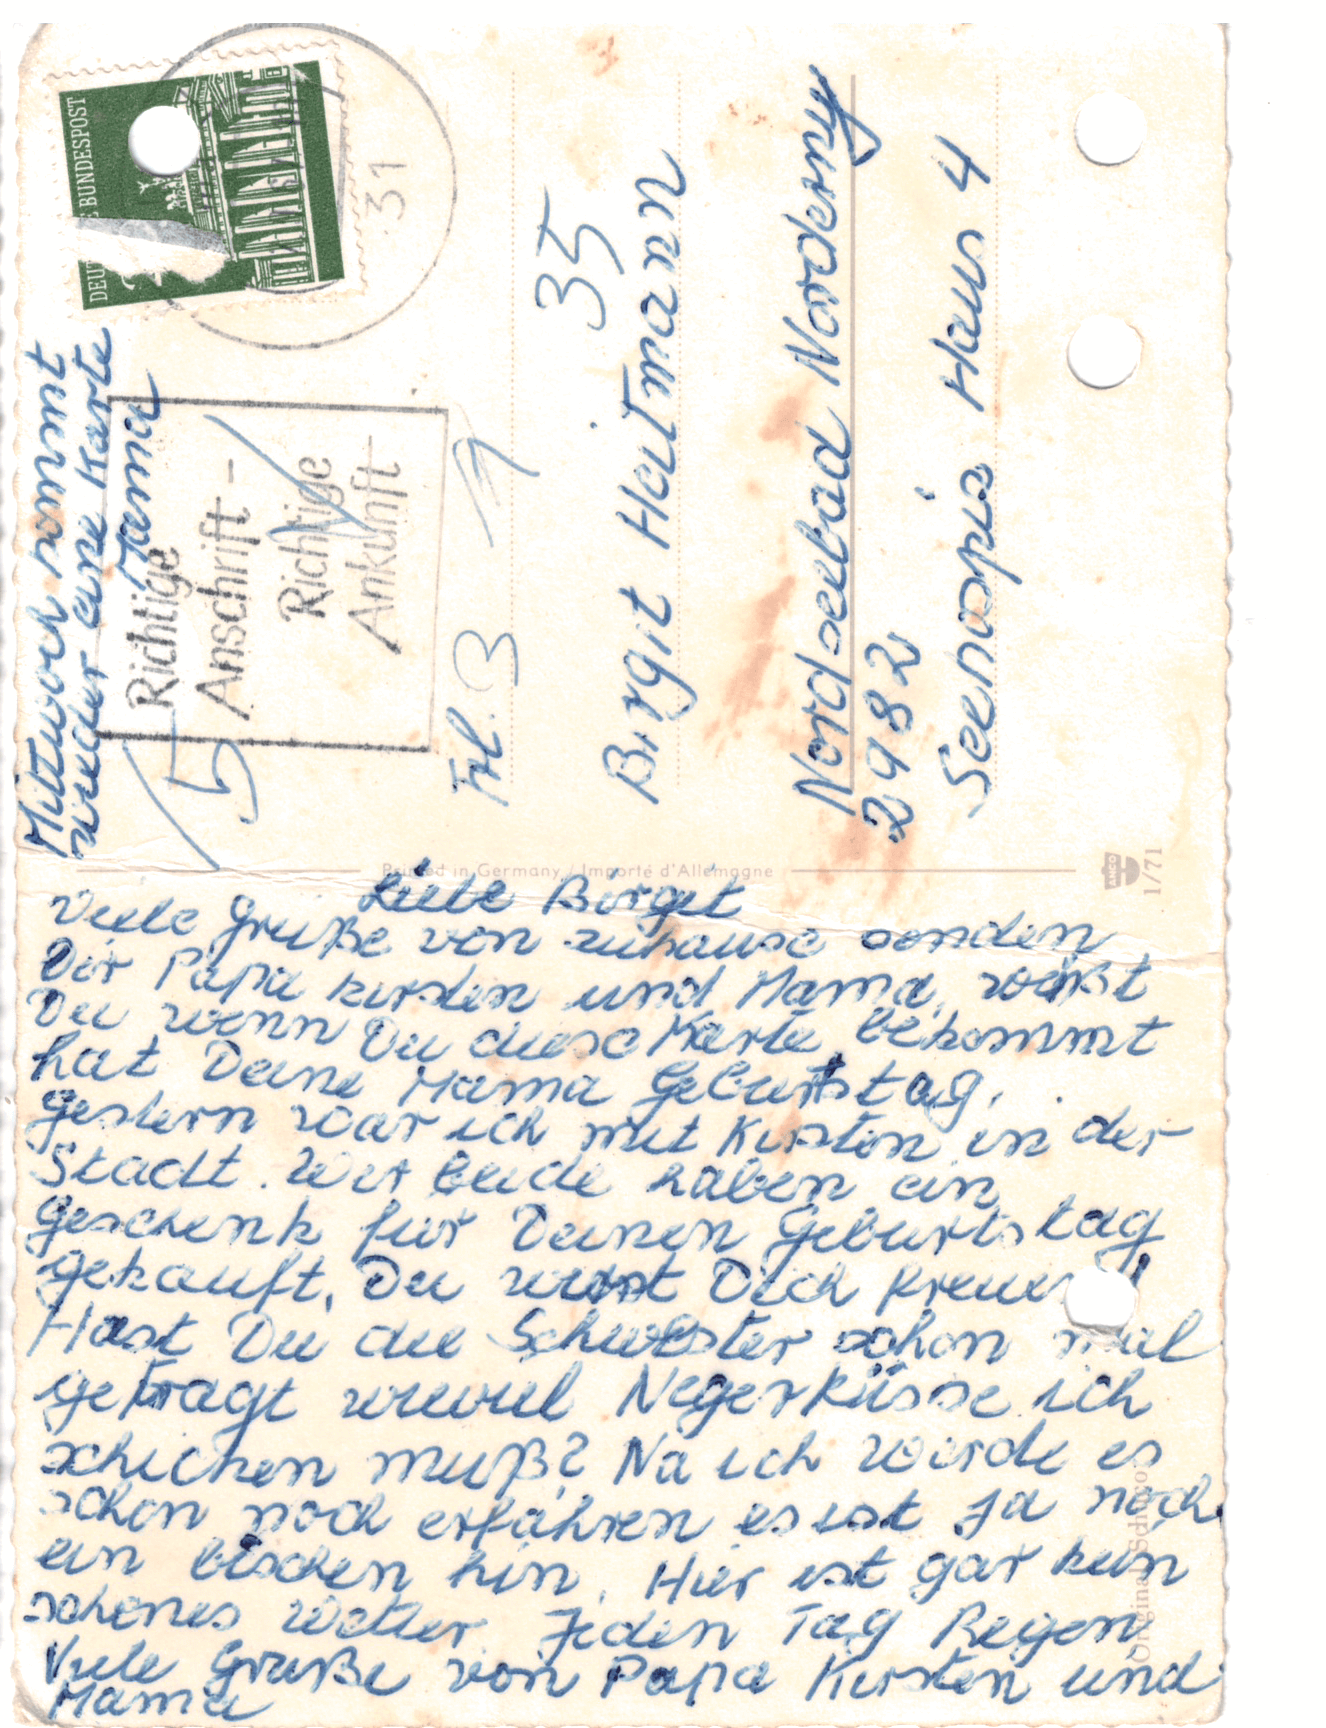 DEUTSCHE BUNDESPOST
31
Mittwoch kommt
wieder eine Karte
Mama
Richtige
Anschrift -
Richtige
Ankunft
5
Frl. 3
35
Birgit Heitmann
Nordseebad Norderny
2982
Seehospis Haus 4
Printed in Germany / Importé d'Allemagne
ANCO
1/71
Liebe Birgit
Viele Grüße von zuhause senden
Dir Papa Kirsten und Mama, weißt
Du wenn Du diese Karte bekommt
hat Deine Mama Geburtstag.
Gestern war ich mit Kirsten in der
Stadt. Wir beide haben ein
Geschenk für Deinen Geburtstag
gekauft. Du wirst Dich freuen!
Hast Du die Schwester schon mal
gefragt wieviel Negerküsse ich
schicken muß? Na ich werde es
schon noch erfahren es ist ja noch
ein bischen hin. Hier ist gar kein
schönes Wetter. Jeden Tag Regen
Viele Grüße von Papa Kirsten und
Mama